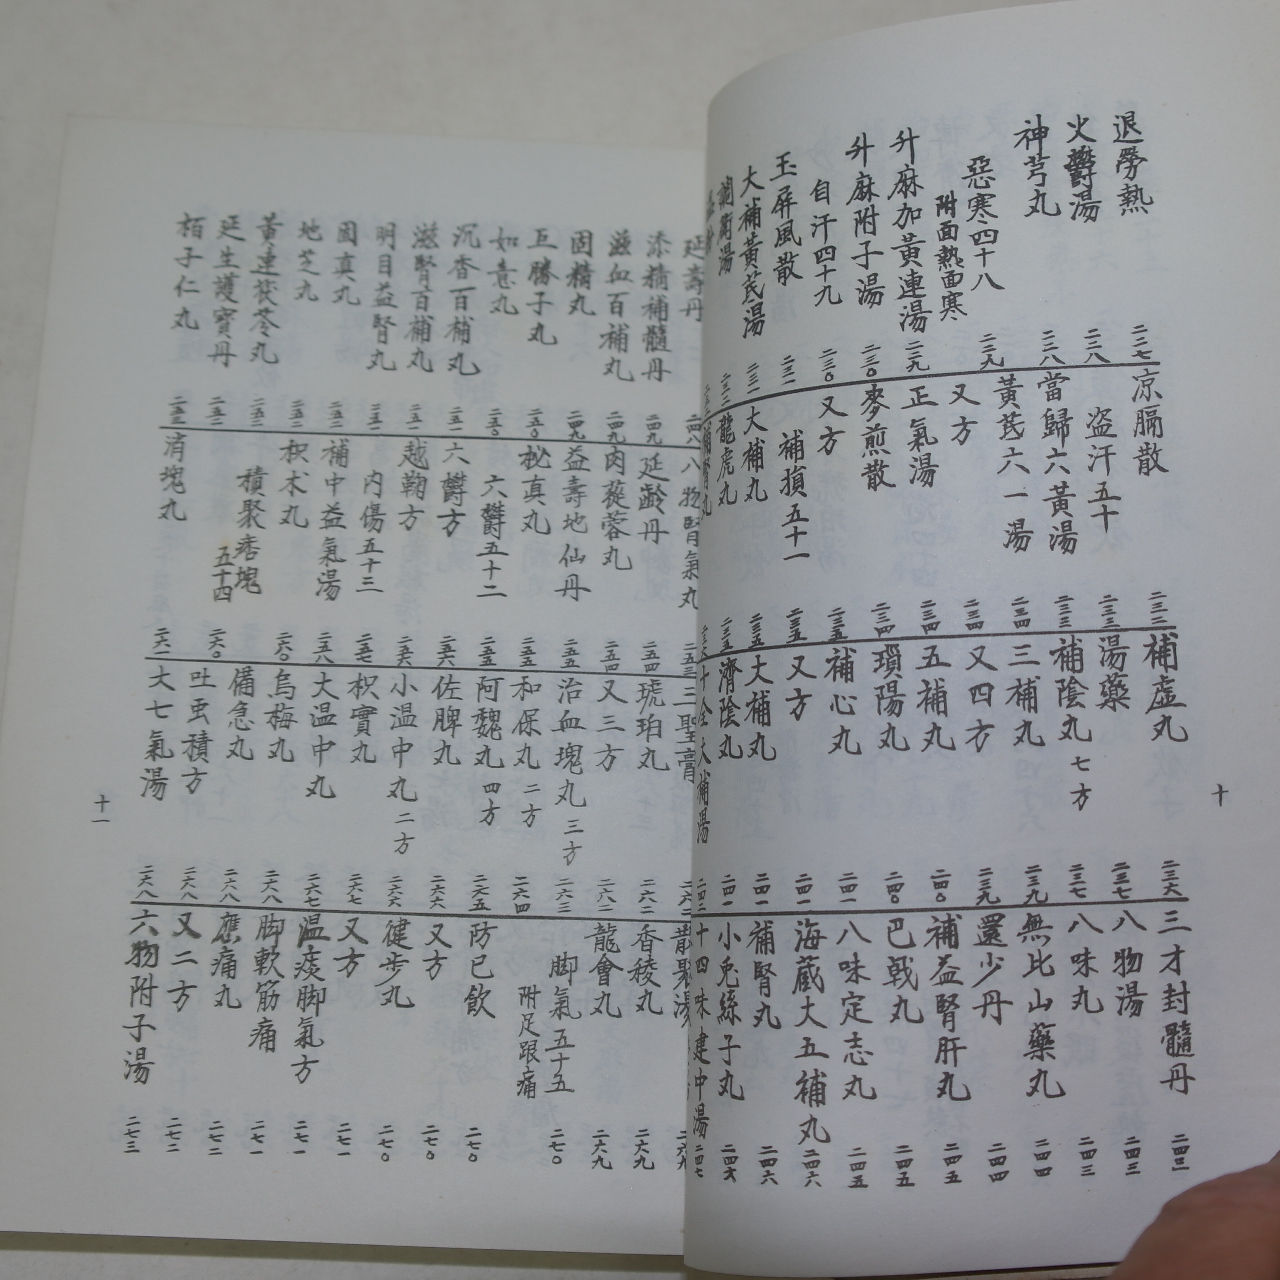 退勞熱
二二七
火鬱湯
二二八
神芎丸
二二八
惡寒四十八
附面熱面寒
二二九
升麻加黃連湯
二二九
升麻附子湯
二三〇
自汗四十九
二三〇
玉屏風散
二三一
大補黃芪湯
二三一
涼膈散
二三二
盜汗五十
二三三
當歸六黃湯
二三三
黃芪六一湯
二三四
又方
二三四
正氣湯
二三四
麥煎散
二三四
又方
二三五
補損五十一
二三五
大補丸
二三五
龍虎丸
二三五
補腎丸
補虛丸
二三六
湯藥
二三七
補陰丸七方
二三七
三補丸
二三九
又四方
二三九
五補丸
二四〇
瑣陽丸
二四〇
補心丸
二四一
又方
二四一
大補丸
二四一
濟陰丸
二四一
十全大補湯
三才封髓丹
二四三
八物湯
二四三
八味丸
二四三
無比山藥丸
二四四
還少丹
二四四
補益腎肝丸
二四五
巴戟丸
二四五
八味定志丸
二四五
海藏大五補丸
二四六
補腎丸
二四六
小兎絲子丸
二四六
十四味建中湯
二四七
十
延壽丹
二四八
添精補髓丹
二四九
滋血百補丸
二四九
固精丸
二四九
巨勝子丸
二五〇
如意丸
二五〇
沉香百補丸
二五一
滋腎百補丸
二五一
明目益腎丸
二五一
固真丸
二五二
地芝丸
二五二
黃連茯苓丸
二五二
延生護寶丹
二五二
栢子仁丸
二五三
八物腎氣丸
二五三
延齡丹
二五四
肉蓯蓉丸
二五四
益壽地仙丹
二五五
秘真丸
二五五
六鬱五十二
二五五
六鬱方
二五六
越鞠方
二五六
內傷五十三
二五七
補中益氣湯
二五八
枳朮丸
二六〇
積聚痞塊五十四
二六〇
消塊丸
二六一
三聖膏
琥珀丸
二六二
又三方
二六二
治血塊丸三方
二六三
和保丸二方
二六四
阿魏丸四方
二六五
佐脾丸
二六六
小温中丸二方
二六六
枳實丸
二六七
大温中丸
二六七
烏梅丸
二六八
備急丸
二六八
吐虫積方
二六八
大七氣湯
二六八
散聚湯
二六九
香稜丸
二六九
龍會丸
二六九
脚氣五十五
附足跟痛
二七〇
防已飲
二七〇
又方
二七〇
健步丸
二七〇
又方
二七一
温痰脚氣方
二七一
脚軟筋痛
二七一
應痛丸
二七二
又二方
二七二
六物附子湯
二七三
十一